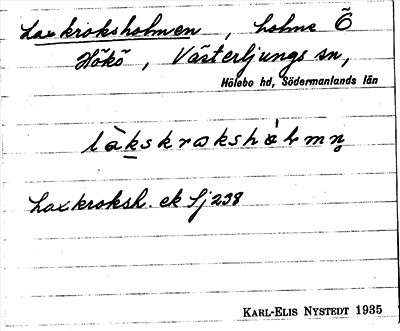 Laxkroksholmen, holme Ö
Hökö, Västerljungs sn,
Hölebo hd, Södermanlands län
làkskrɷkshòłmn̥
Laxkroksh. ek Sj 238
KARL-ELIS NYSTEDT 1935